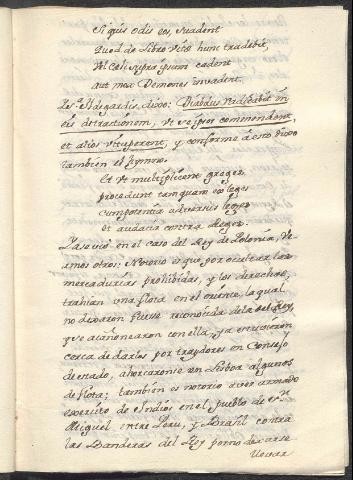 Si quis odis eos, suadent
Quod de Libro vitæ hunc tradebit,
Vel Celi supra ipsum cadent
aut mox Demones invadent.
Sta. Ildegardis, dixo: Diabolus radicabit in
eis detractionem, ut se ipsos commendent,
et alios vituperent, y conforme à esto dixo
tambien el Hymno.
Et ut multiplicent greges
procedunt tamquam ex leges
cum potentia adversus leges
et audacia contra Reges.
Ya se vió en el caso del Rey de Polonia, Ve-
amos otros: Notorio es que por ocultar las
mercadurias prohibidas, y los derechos,
trahian una flota en el oriente, la qual
no dexaron fuesse reconocida de la del Rey,
que se cañonearon con ella, ya estuvieron
cerca de darlos por traydores en Consejo
de estado, ahorcaronse en Lisboa algunos
de flota; tambien es notorio aver armado
exercito de Indios en el pueblo de Sn.
Miguel entre Peru, y Brasil contra
las Banderas del Rey por no dexarse